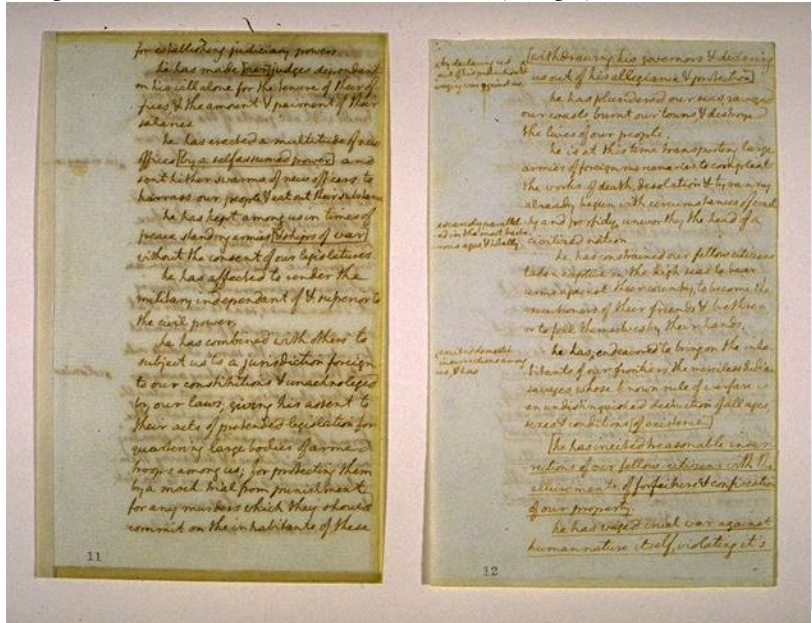 for establishing judiciary powers.
he has made [our] judges dependant
on his will alone for the tenure of their of-
fices & the amount & paiment of their
salaries
he has erected a multitude of new
offices [by a self assumed power] and
sent hither swarms of new officers to
harrass our people & eat out their substance
he has kept among us in times of
peace standing armies [& ships of war]
without the consent of our legislatures.
he has affected to render the
military independant of & superior to
the civil power.
he has combined with others to
subject us to a jurisdiction foreign
to our constitutions & unacknoleged
by our laws, giving his assent to
their acts of pretended legislation for
quartering large bodies of armed
troops among us; for protecting them
by a mock trial from punishment
for any murders which they should
commit on the inhabitants of these
11
by declaring us
out of his protection &
waging war against us
[withdrawing his governors & declaring
us out of his allegiance & protection]
he has plundered our seas, ravaged
our coasts burnt our towns & destroyed
the lives of our people.
he is at this time transporting large
armies of foreign mercenaries to compleat
the works of death, desolation & tyranny
already begun with circumstances of cruel-
scarcely parallel-
ed in the most barba-
rous ages, & totally
ty and perfidy unworthy the head of a
civilized nation
he has constrained our fellow citizens
taken captive on the high seas to bear
arms against their country, to become the
executioners of their friends & brethren
or to fall themselves by their hands.
excited domestic
insurrections among
us, & has
he has endeavored to bring on the inha-
bitants of our frontiers the merciless Indian
savages whose known rule of warfare is
an undistinguished destruction of all ages,
sexes & conditions [of existence]
[he has incited treasonable insur-
rections of our fellow citizens with the
allurements of forfeiture & confiscation
of our property.
he has waged cruel war against
human nature itself, violating it's
12